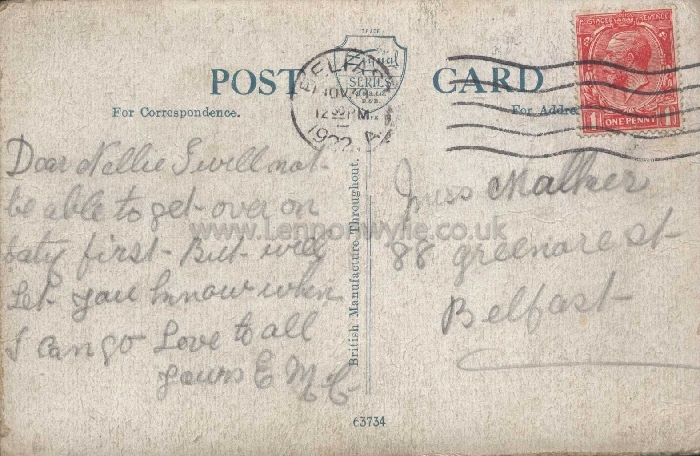 POST CARD
TRADE
Regal
SERIES
BELFAST
NOV
12 PM
1922
For Correspondence.
For Addre
POSTAGE REVENUE
1 ONE PENNY 1
Dear Nellie I will not
be able to get over on
Saty first - But will
Let you know when
I can go Love to all
yours E Mc C
British Manufacture Throughout.
Miss
88 greenore st
Belfast
www.Lennonwylie.co.uk
63734